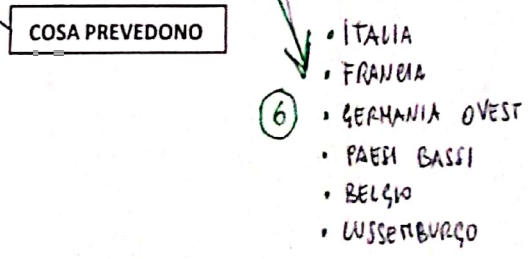 COSA PREVEDONO
• ITALIA
• FRANCIA
6 • GERMANIA OVEST
• PAESI BASSI
• BELGIO
• LUSSEMBURGO